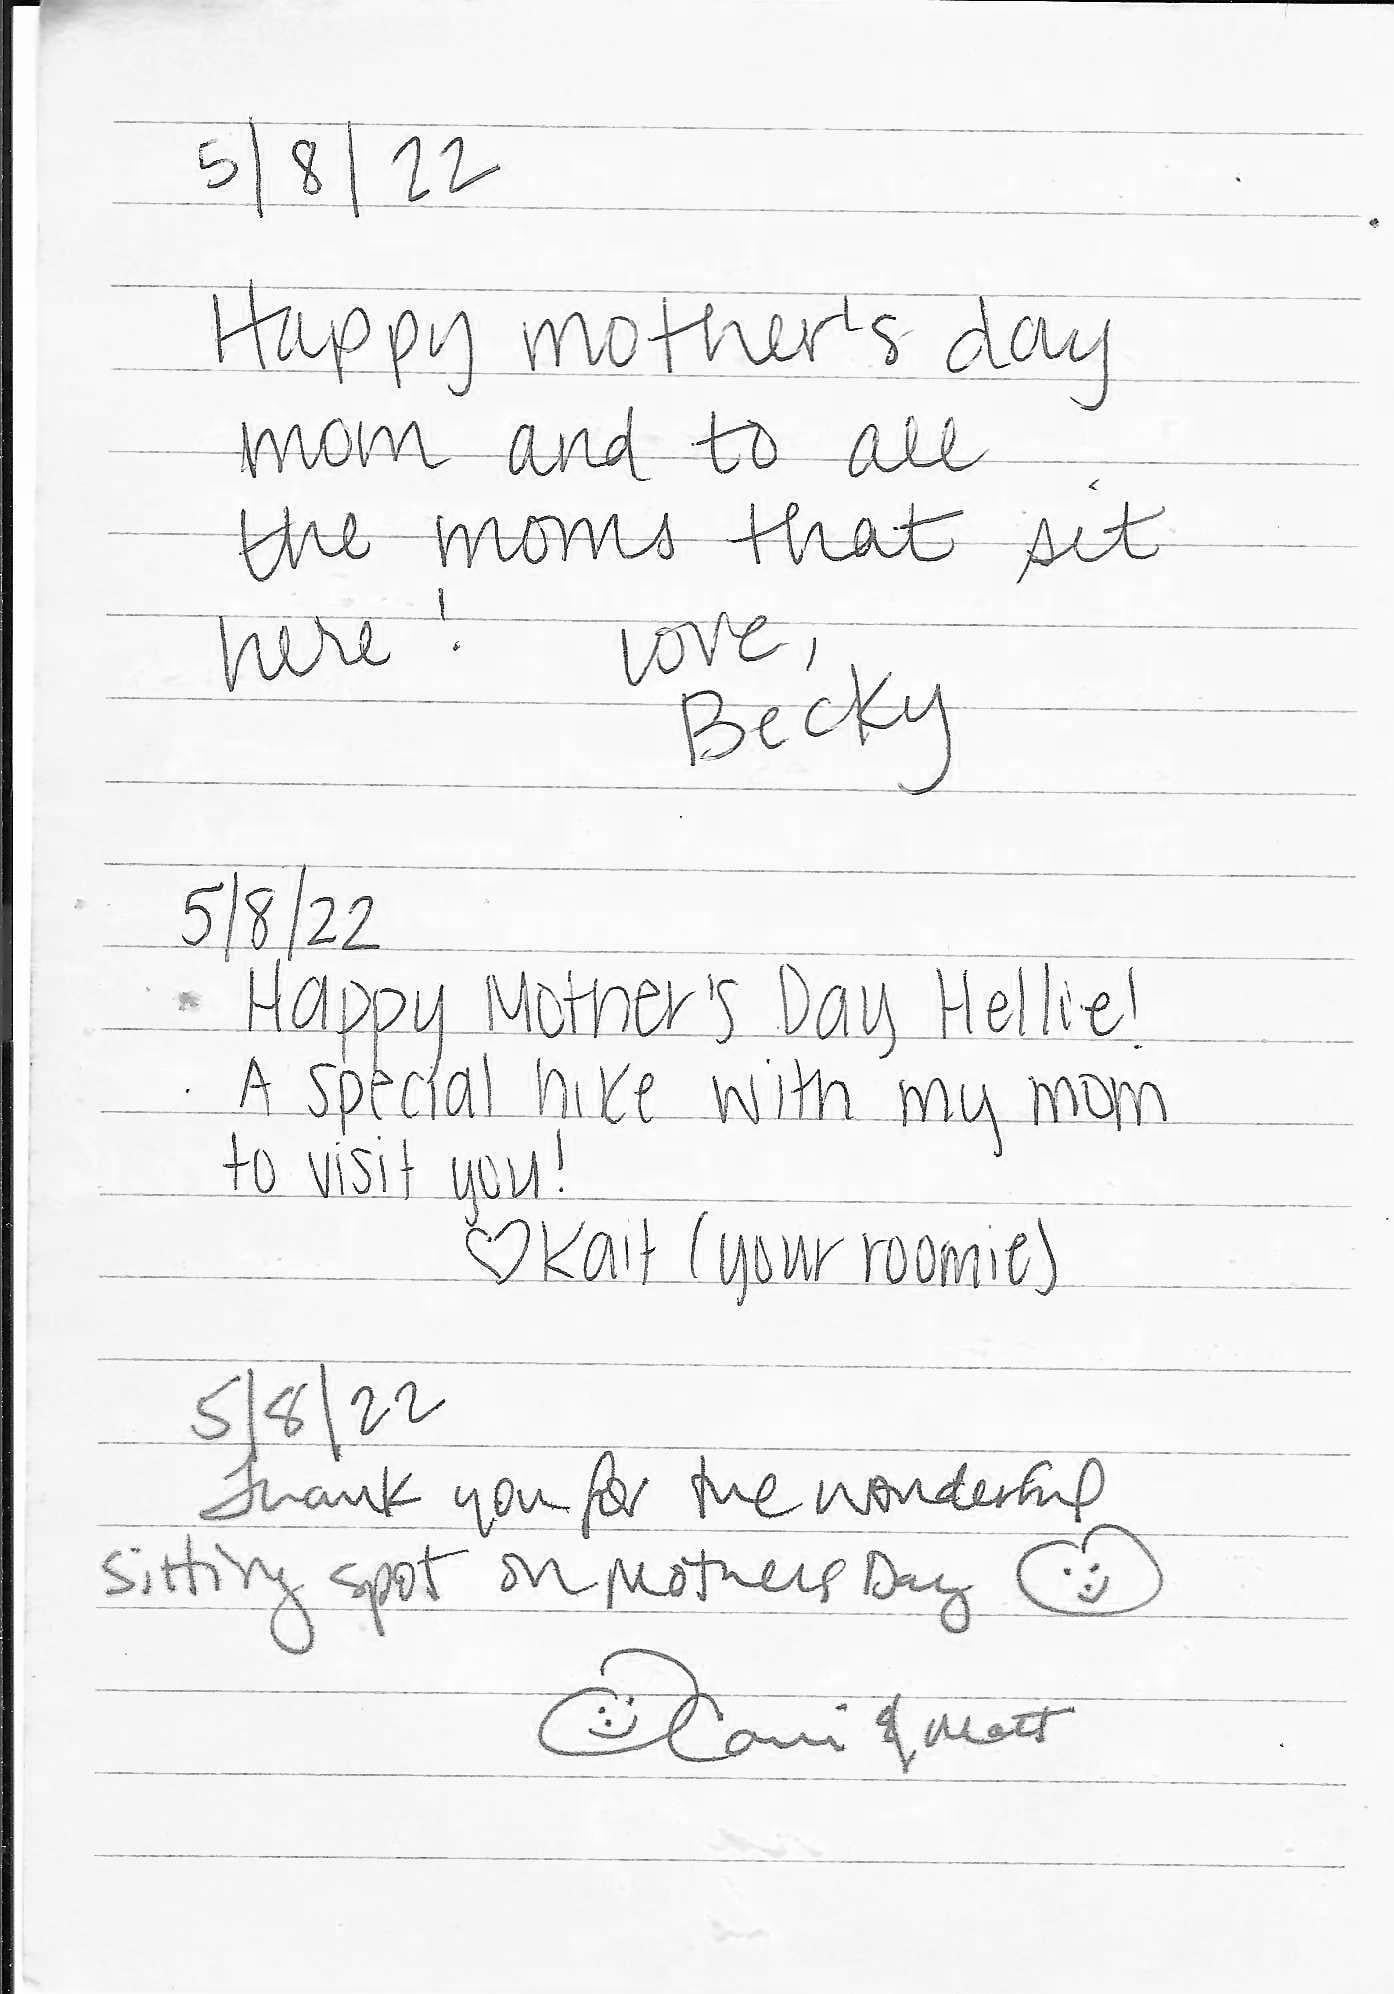 5/8/22
Happy mother's day
mom and to all
the moms that sit
here! love,
Becky
5/8/22
Happy Mother's Day Hellie!
A special hike with my mom
to visit you!
♡Kait (your roomie)
5/8/22
Thank you for the wonderful
sitting spot on Mothers Day
& Matt